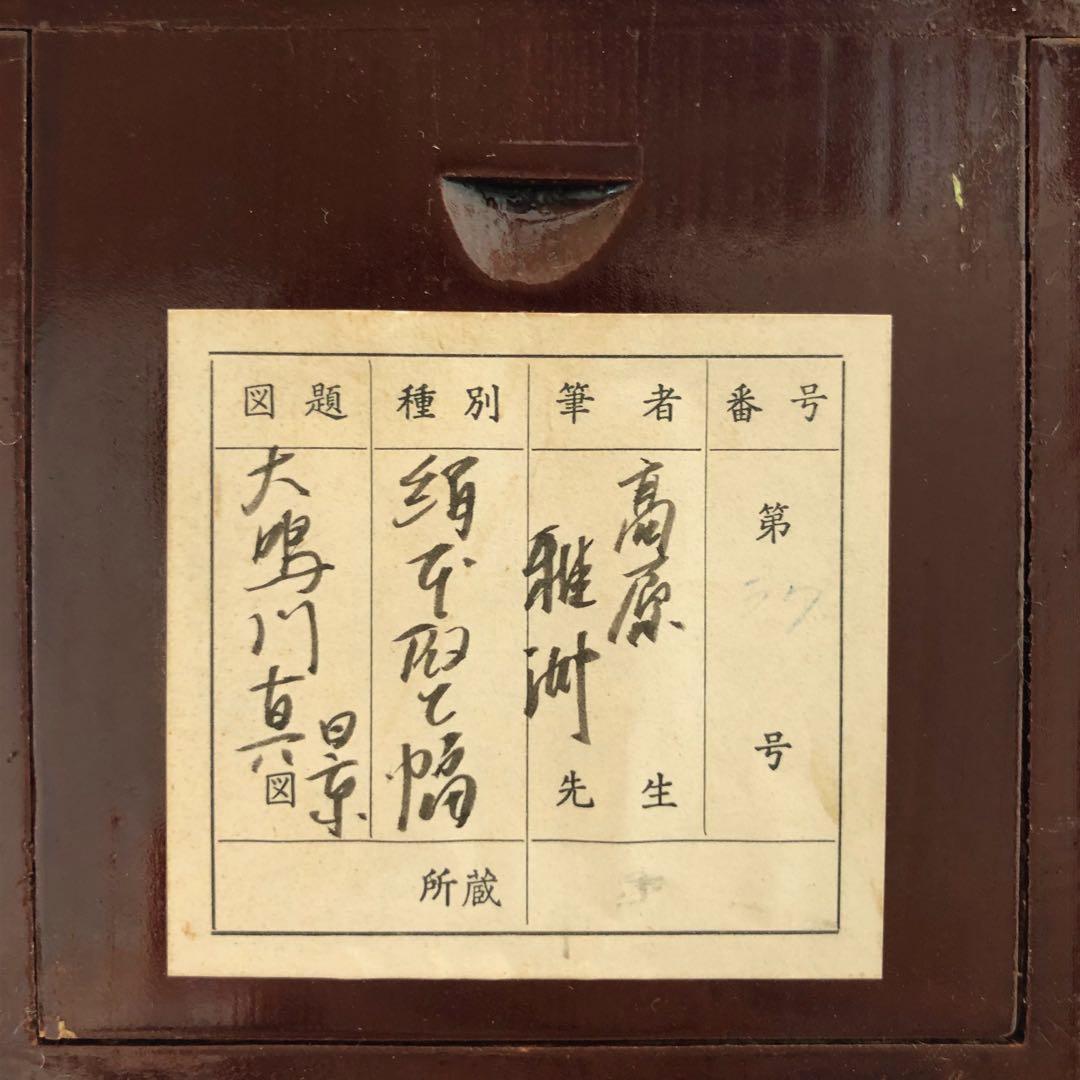 番号
第
号
筆者
高原
雅洲
先生
種別
絹本竪幅
図題
大鳴川真景
図
所蔵